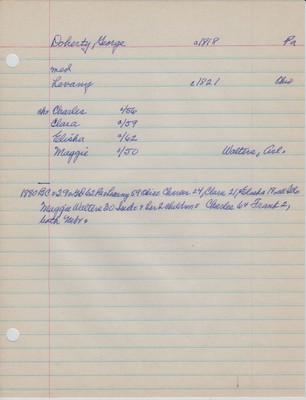 Doherty, George c1818 Pa
med
Levany c1821 Ohio
ch: Charles c/56
Clara c/59
Elisha c/62
Maggie c/50 Walters,
1880 BC 62 Pa Levany 59 Ohio 24, Clara 21, Elisha
Maggie Walters 30 & her 2 Children Charles 6 & Frank 2,
both Nebr.